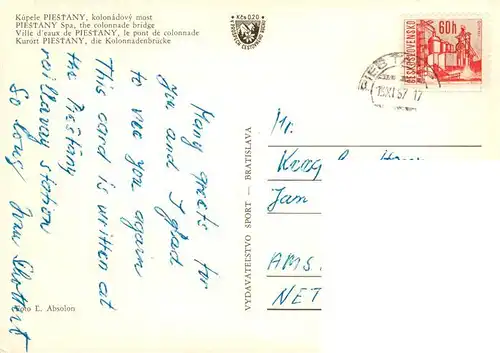 Kúpele PIEŠŤANY, kolonádový most
PIEŠŤANY Spa, the colonnade bridge
Ville d'eaux de PIEŠŤANY, le pont de colonnade
Kurort PIEŠŤANY, die Kolonnadenbrücke
Kčs 0,20
60h
ČESKOSLOVENSKO
Many greets for
you and I glad
to see you again
This card is written at
the Piešťany
railway station
So long Ivan
VYDAVATEĽSTVO ŠPORT — BRATISLAVA
Foto Ľ. Absolon
Mr.
Jan
AMS
NET